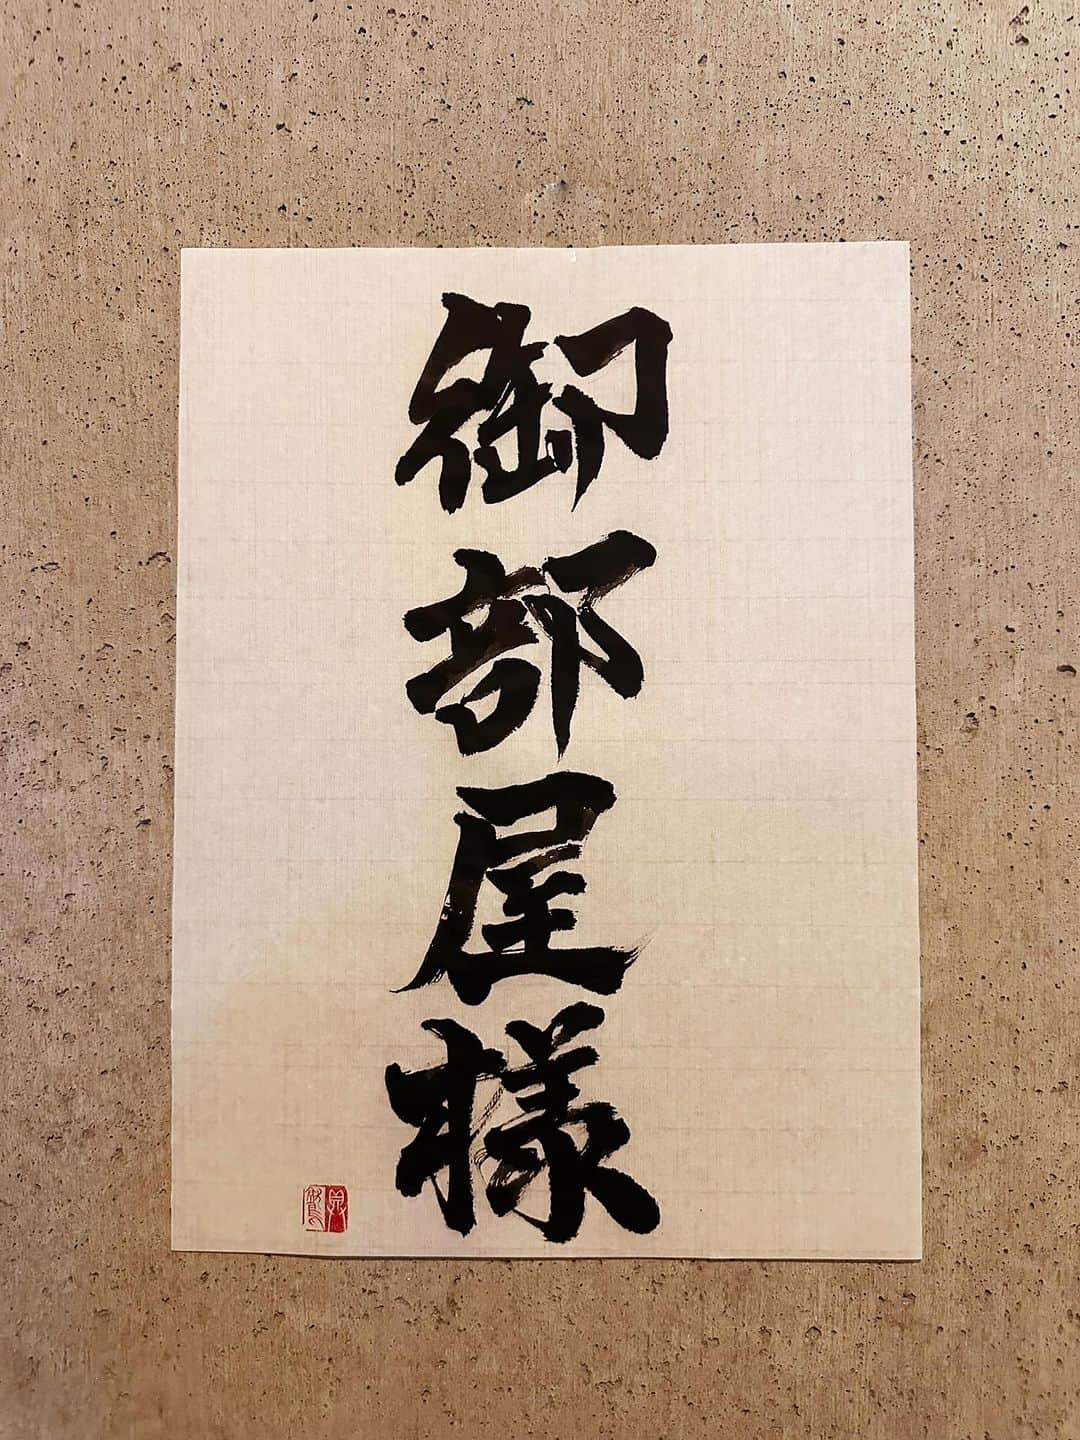 御部屋様